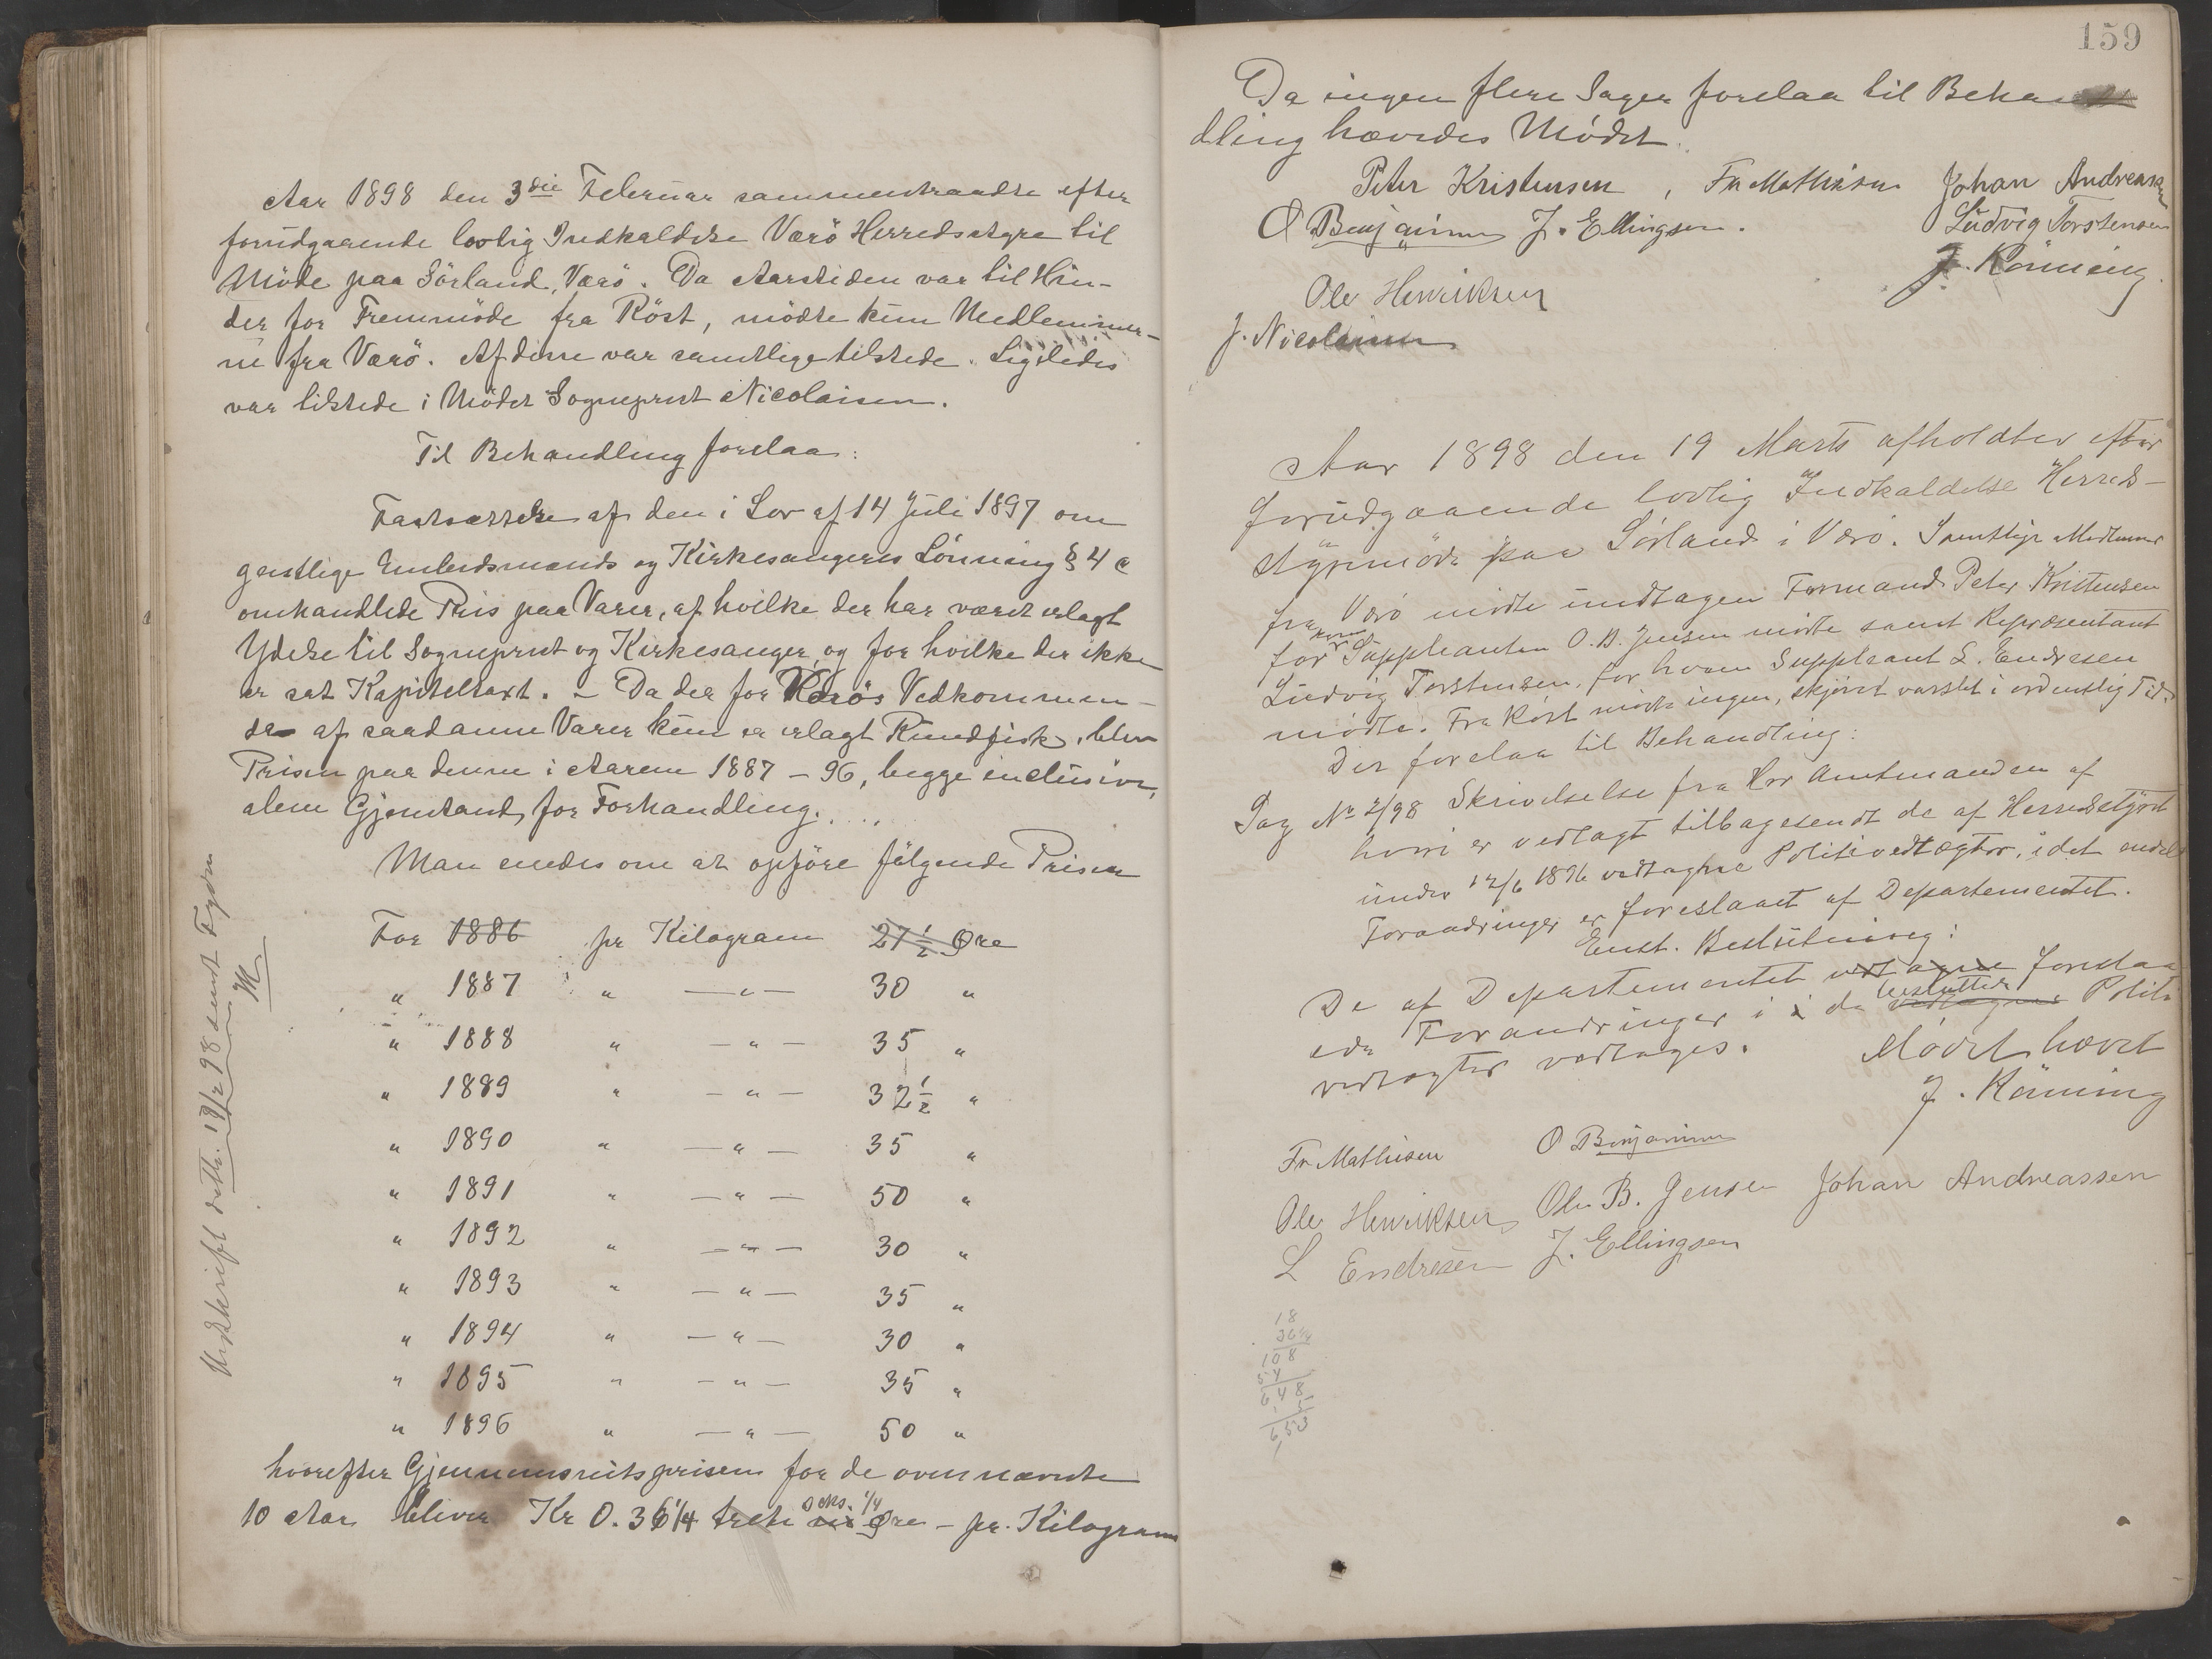 Aar 1898 den 3die Februar sammentraadte efter
forudgaaende lovlig Indkaldelse Værö Herredsstyre til
Möde paa Sörland, Værö. Da Aarstiden var til Hin-
der for Fremmöde fra Röst, mödte kun Medlemmer-
ne fra Værö. Af disse var samtlige tilstede. Ligeledes
var tilstede i Mödet Sogneprest Nicolaisen.
Til Behandling forelaa:
Fastsættelse af den i Lov af 14 Juli 1897 om
geistlige Embedsmænds og Kirkesangeres Lönning § 4 c
omhandlede Pris paa Varer, af hvilke der har været erlagt
Ydelse til Sogneprest og Kirkesanger, og for hvilke der ikke
er sat Kapitelstaxt. – Da der for Værös Vedkommen-
de af saadanne Varer kun er erlagt Rundfisk, blev
Prisen paa denne i Aarene 1887 – 96, begge inclusive,
alene Gjenstand for Forhandling.
Man enedes om at opföre fölgende Priser
For 1886 pr Kilogram 27½ Øre
" 1887 " — " — 30 "
" 1888 " — " — 35 "
" 1889 " — " — 32½ "
" 1890 " — " — 35 "
" 1891 " — " — 50 "
" 1892 " — " — 30 "
" 1893 " — " — 35 "
" 1894 " — " — 30 "
" 1895 " — " — 35 "
" 1896 " — " — 50 "
hvorefter Gjennemsnitsprisen for de ovennævnte
seks. 1/4
10 Aar bliver Kr 0.36 1/4 treti Øre – pr. Kilogram
Udskrift dette 19/2 98 sendt Fogden
M
159
Da ingen flere Sager forelaa til Behan
dling hævedes Mödet.
Peter Kristensen, Fr Mathisen Johan Andreassen
O Benjaminsen J. Ellingsen. Ludvig Torstensen
J. Rönning.
Ole Henriksen
J. Nicolaisen
Aar 1898 den 19 Marts afholdtes efter
forudgaaende lovlig Indkaldelse Herreds-
styremöde paa Sörland i Værö. Samtlige Medlemmer
fra Værö mödte undtagen Formand Peter Kristensen
hvem
for Suppleanten O. B. Jensen mödte samt Repræsentant
Ludvig Torstensen, for hvem Suppleant L. Endresen
mödte. Fra Röst mödte ingen, skjönt varslet i ordentlig Tid.
Der forelaa til Behandling:
Sag No 2/98 Skrivelse fra Hr Amtmanden af
hvori er vedlagt tilbagesendt de af Herredsstyret
under 12/6 1896 vedtagne Politivedtægter, idet endel
Forandringer er foreslaaet af Departementet.
Enst. Beslutning:
De af Departementet vedtagne foreslaa
besluttede
ede Forandringer i de vedtagne Politi
vedtægter vedtages. Mödet hævet
J. Rönning
Fr Mathisen O Benjaminsen
Ole Henriksen Ole B. Jensen Johan Andreassen
L Endresen J. Ellingsen
18
36 1/4
108
54
648
5
6,53